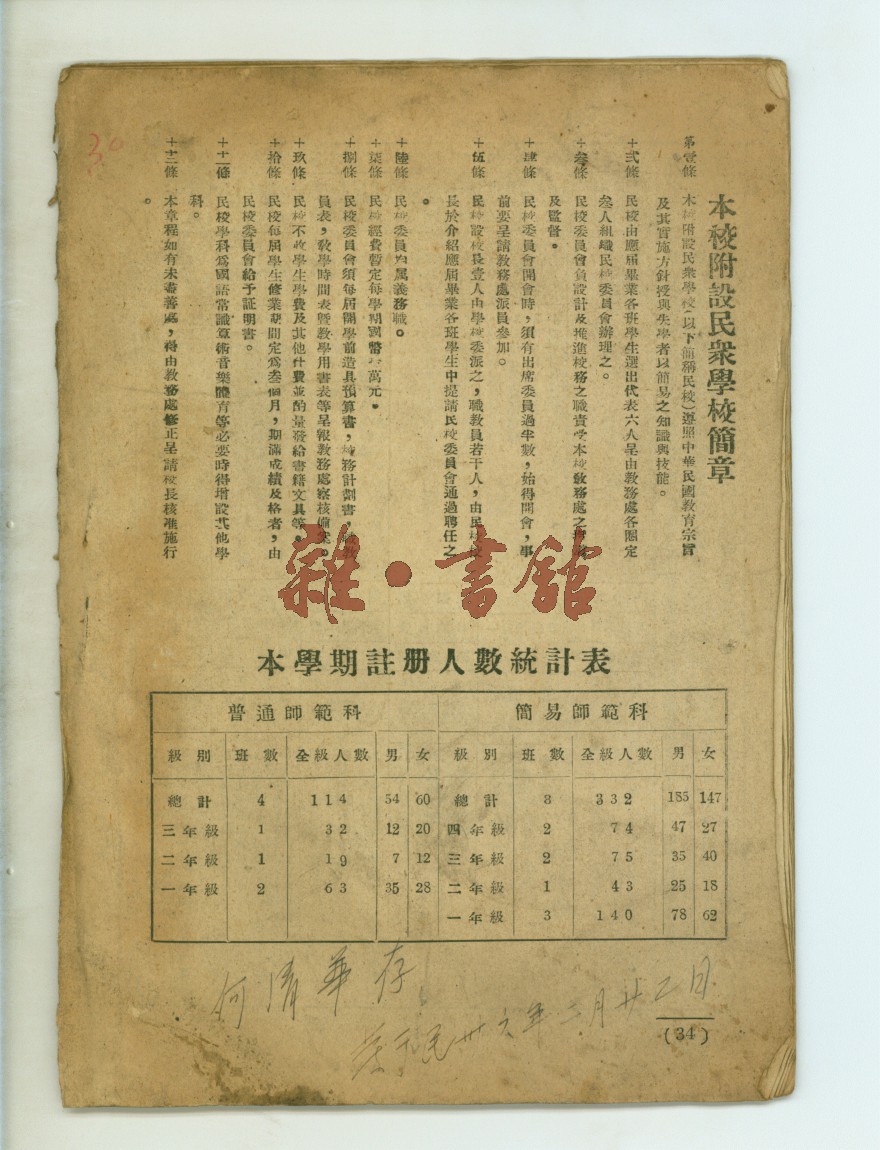 本校附設民衆學校簡章
第壹條 本校附設民衆學校(以下簡稱民校)遵照中華民國教育宗旨
及其實施方針授與失學者以簡易之知識與技能。
十弍條 民校由應屆畢業各班學生選出代表六人呈由教務處各圈定
叁人組織民校委員會辦理之。
十叁條 民校委員會負設計及推進校務之職責受本校教務處之
及監督。
十肆條 民校委員會開會時,須有出席委員過半數,始得開會,事
前要呈請教務處派員參加。
十伍條 民校設校長壹人由學校委派之,職教員若干人,由民校校
長於介紹應屆畢業各班學生中提請民校委員會通過聘任之
。
十陸條 民校委員均屬義務職。
十柒條 民校經費暫定每學期國幣 萬元。
十捌條 民校委員會須每屆開學前造具預算書,校務計劃書,職教
員表,教學時間表曁教學用書表等呈報教務處察核備案。
十玖條 民校不收學生學費及其他什費並酌量發給書籍文具等。
十拾條 民校每屆學生修業期間定爲叁個月,期滿成績及格者,由
民校委員會給予証明書。
十十一條 民校學科爲國語常識算術音樂體育等必要時得增設其他學
科。
十十二條 本章程如有未盡善處,得由教務處修正呈請校長核准施行
。
雜·書舘
本學期註册人數統計表
普通師範科 簡易師範科
級別 班數 全級人數 男 女 級別 班數 全級人數 男 女
總計 4 114 54 60 總計 8 332 185 147
三年級 1 32 12 20 四年級 2 74 47 27
二年級 1 19 7 12 三年級 2 75 35 40
一年級 2 63 35 28 二年級 1 43 25 18
一年級 3 140 78 62
何清華存
民卅六年二月廿二日
(34)
30